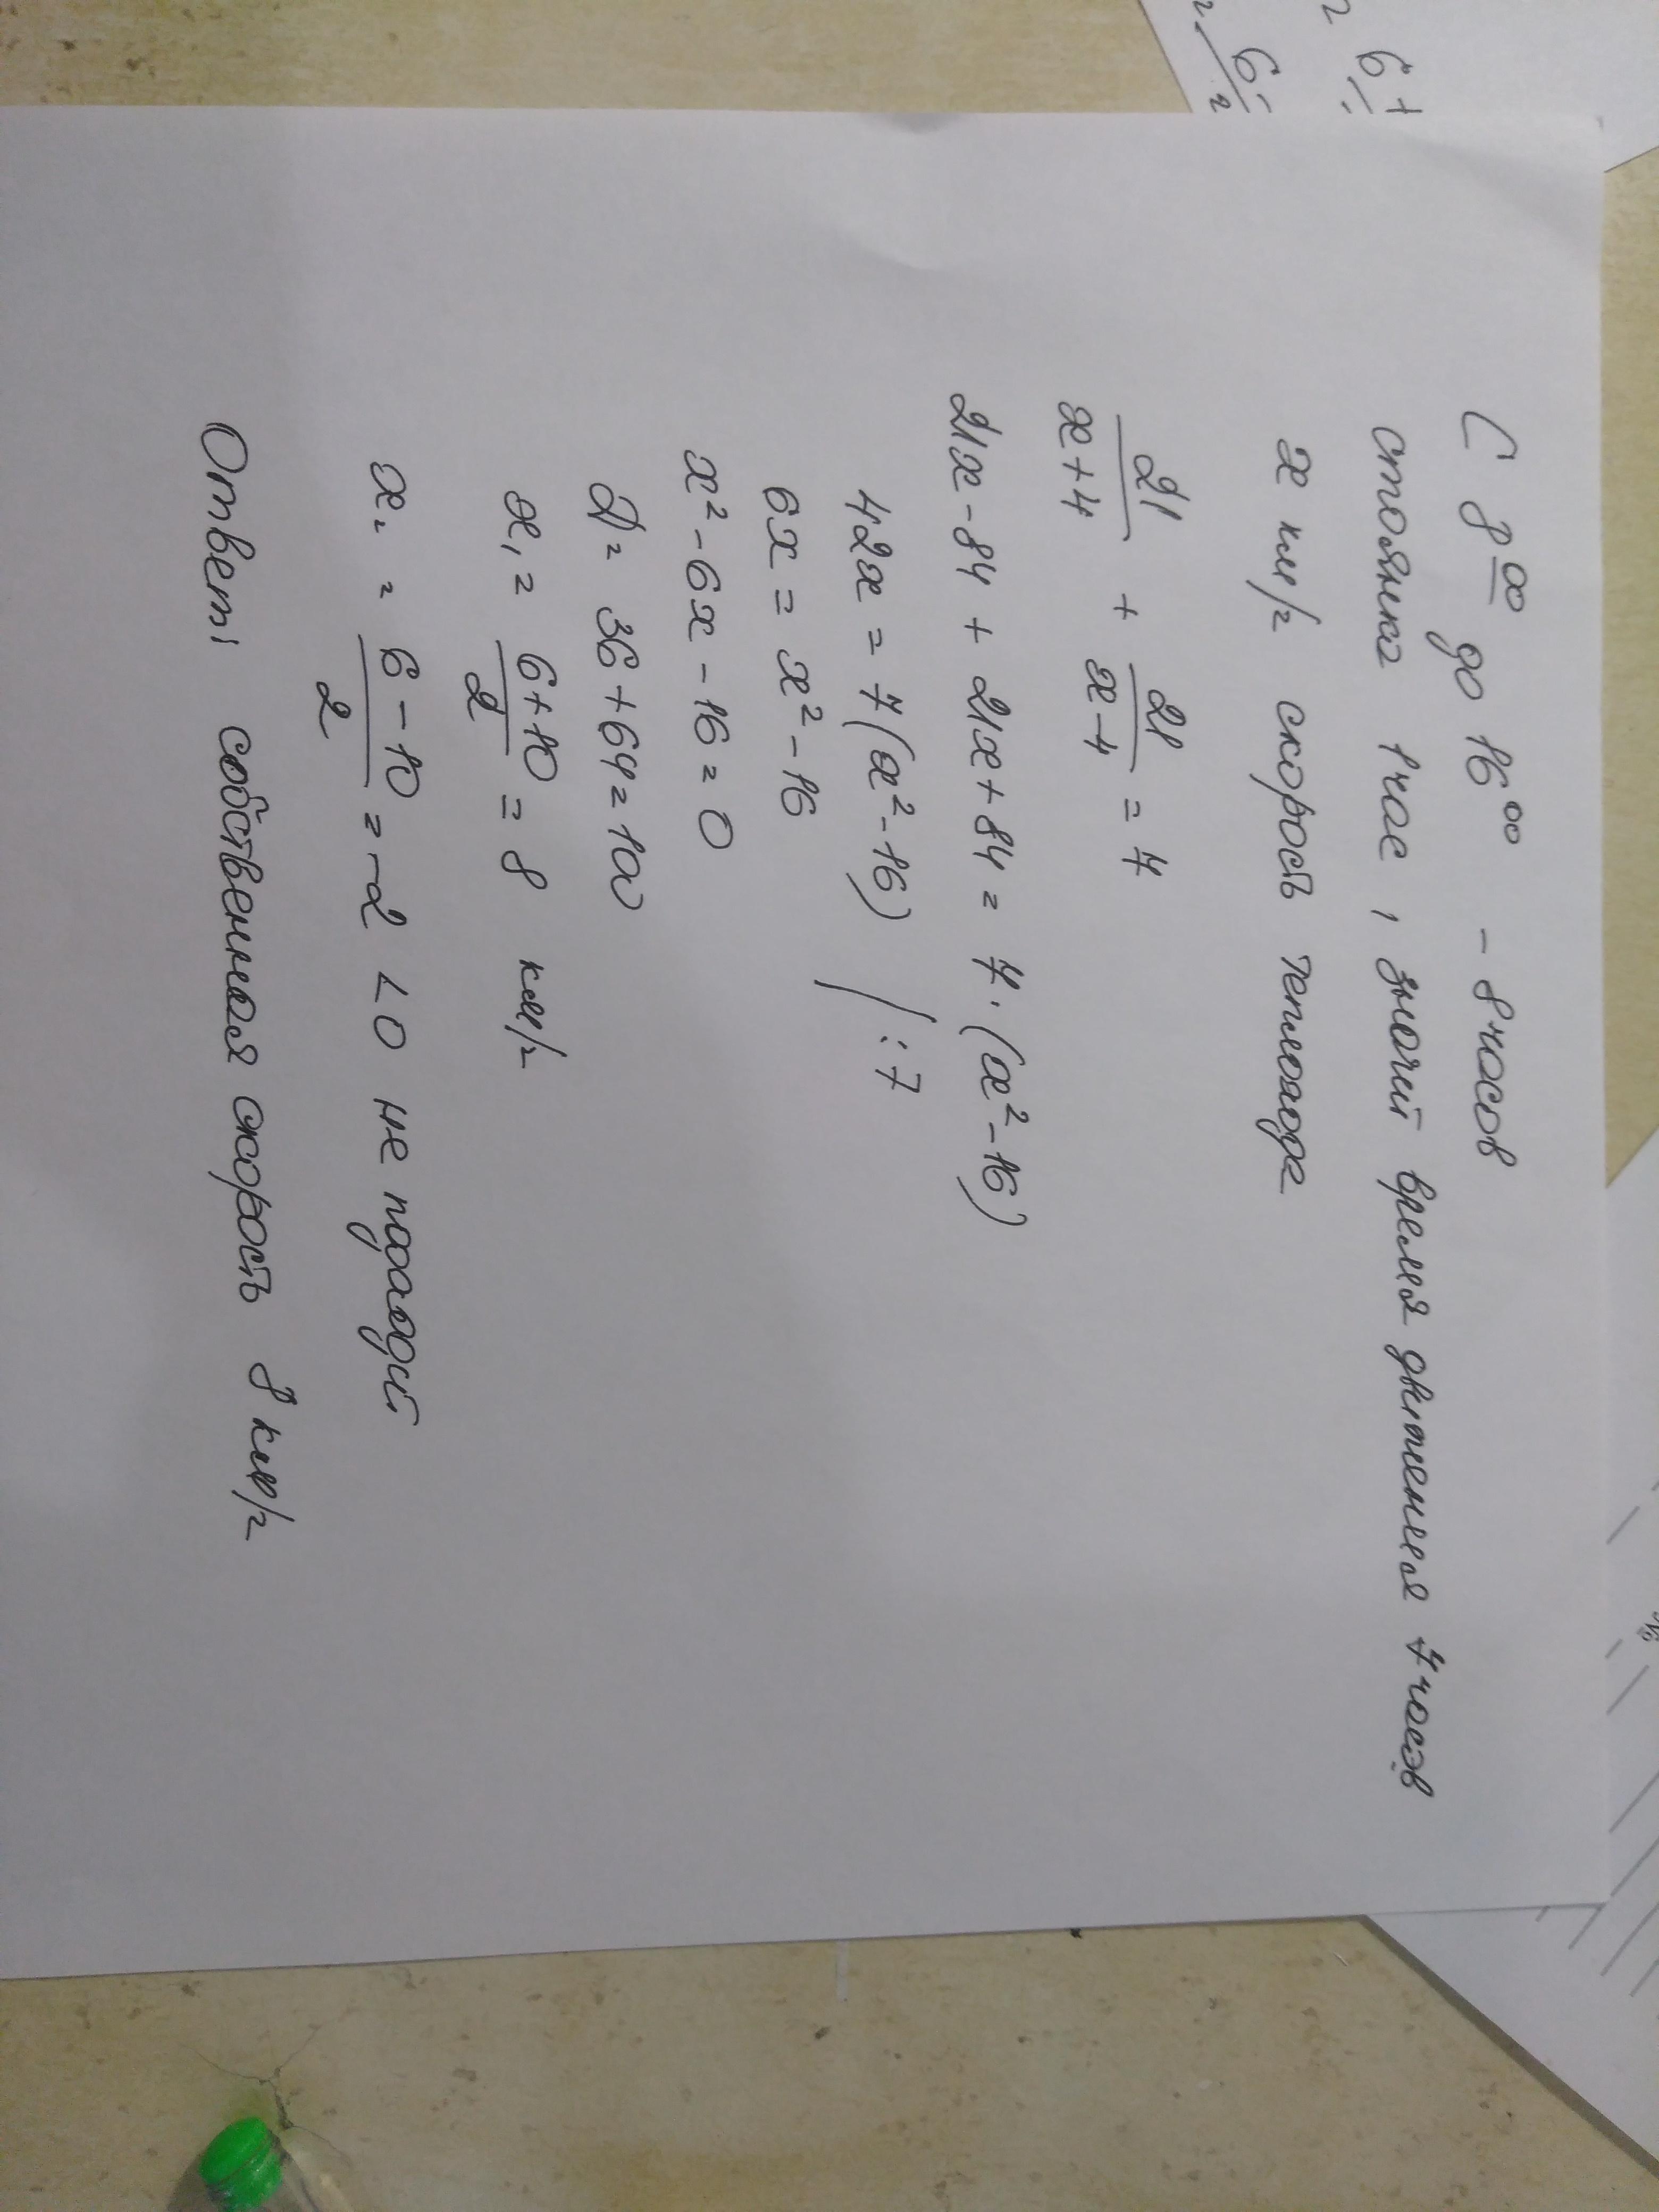 С 8⁰⁰ до 16⁰⁰ - 8 часов
стоянка 1 час, значит время движения 7 часов
x км/ч скорость теплохода
21/(x+4) + 21/(x-4) = 7
21x - 84 + 21x + 84 = 7·(x² - 16)
42x = 7(x² - 16) | :7
6x = x² - 16
x² - 6x - 16 = 0
D = 36 + 64 = 100
x₁ = (6+10)/2 = 8 км/ч
x₂ = (6-10)/2 = -2 < 0 не подходит
Ответ: собственная скорость 8 км/ч